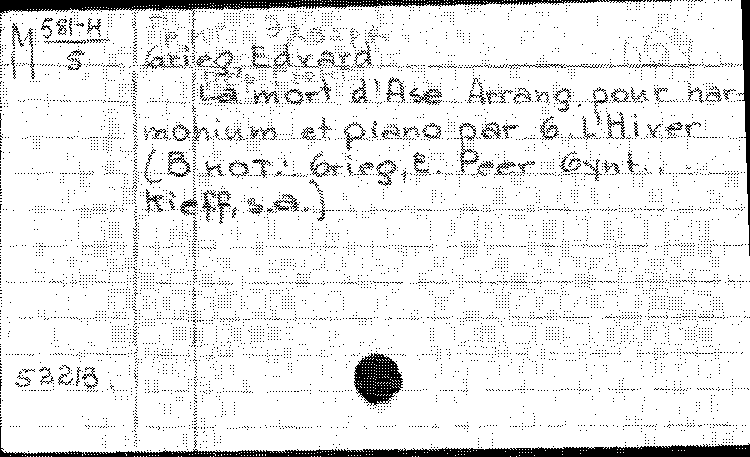 M 581-H
5
Grieg, Edvard
La mort d'Ase Arrang. pour har-
monium et piano par G. L'Hiver
(В нот.: Grieg, E. Peer Gynt..
Kieff, s.a.)
5321B